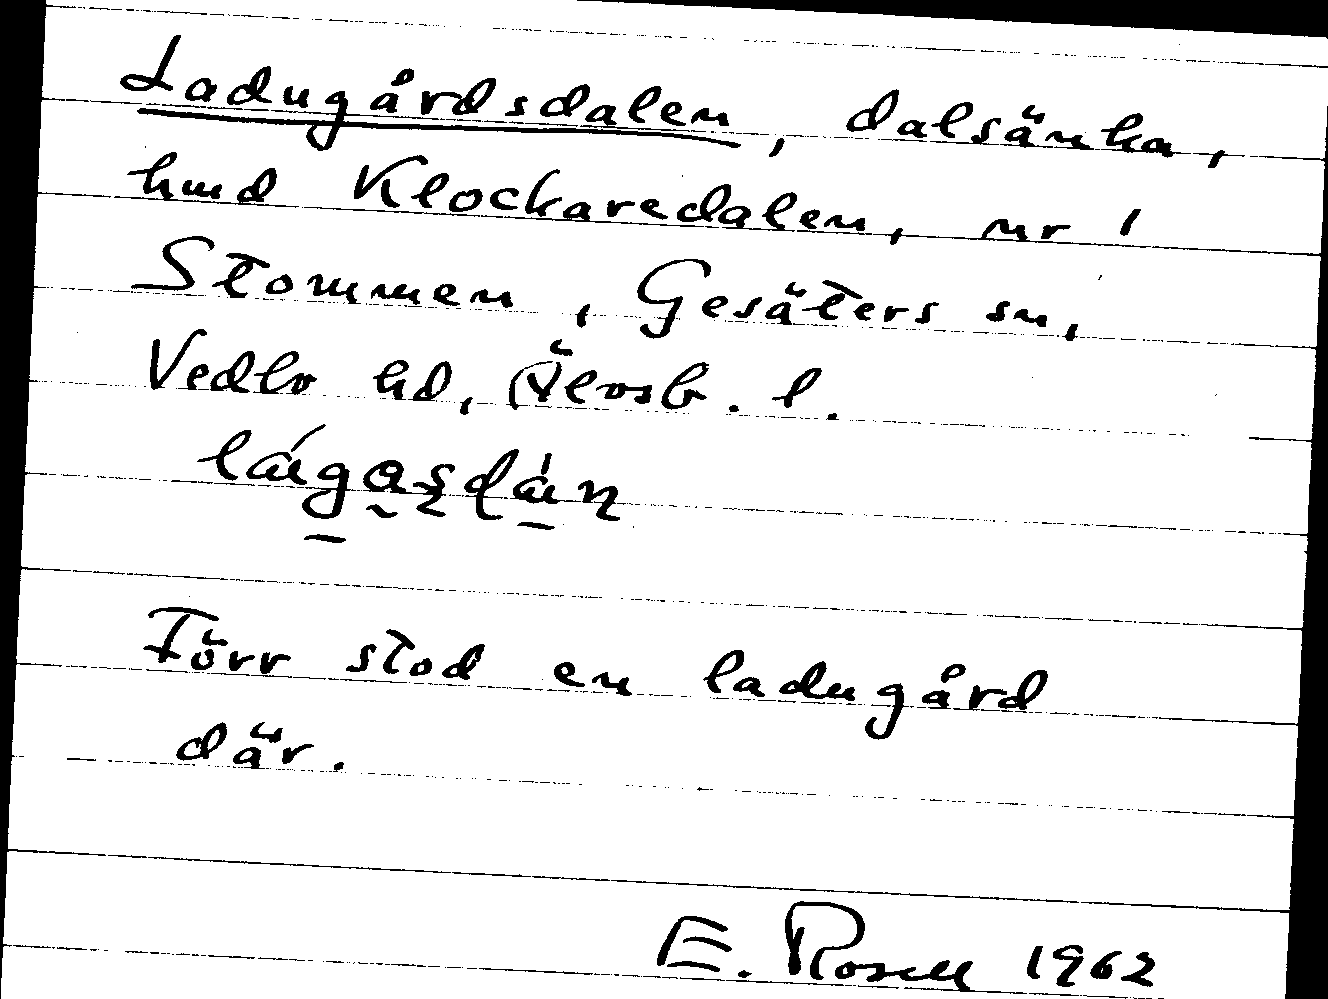 Ladugårdsdalen, dalsänka,
hmd Klockaredalen, nr 1
Stommen, Gesäters sn,
Vedbo hd, Älvsb. l.
Förr stod en ladugård
där.
E. Rosell 1962